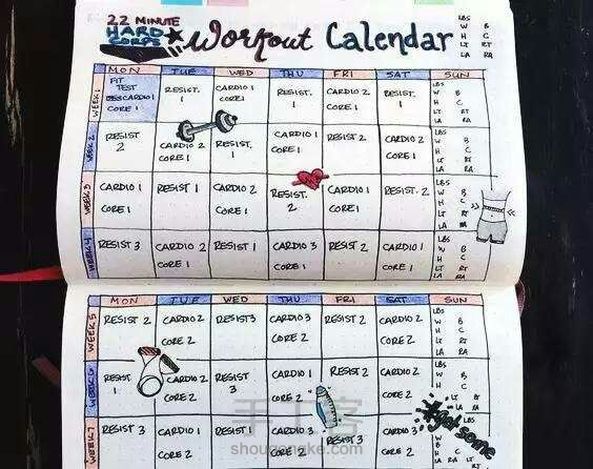 22 MINUTE
HARD
CORPS
Workout Calendar
LBS
W B
H C
LT RT
LA RA
MON TUE WED THU FRI SAT SUN
WEEK 1
FIT TEST CARDIO 1 CORE 1
RESIST. 1
CARDIO 1 CORE 1
RESIST. 1
CARDIO 2 CORE 1
RESIST. 1
LBS
W B
H C
LT RT
LA RA
WEEK 2
RESIST 2
CARDIO 2 CORE 1
RESIST. 1
CARDIO 1 CORE 1
RESIST 2
CARDIO 2 CORE 1
LBS
W B
H C
LT RT
LA RA
WEEK 3
CARDIO 1 CORE 1
RESIST 1
CARDIO 2 CORE 1
RESIST. 2
CARDIO 1 CORE 1
RESIST. 2
LBS
W B
H C
LT RT
LA RA
WEEK 4
RESIST 3
CARDIO 2 CORE 1
RESIST 1
CARDIO 3 CORE 1
RESIST 2
CARDIO 1 CORE 1
LBS
W B
H C
LT RT
LA RA
MON TUE WED THU FRI SAT SUN
WEEK 5
RESIST 2
CARDIO 2 CORE 2
RESIST 3
CARDIO 3 CORE 2
RESIST 2
CARDIO 2 CORE 2
LBS
W B
H C
LT RT
LA RA
WEEK 6
RESIST 1
CARDIO 2 CORE 2
RESIST 3
CARDIO 1 CORE 2
RESIST 2
CARDIO 2 CORE 2
LBS
W B
H C
LT RT
LA RA
#get some
WEEK 7
RESIST 3
CARDIO 1 CORE 2
RESIST 1
CARDIO 3 CORE 2
RESIST 3
CARDIO 3 CORE 2
LBS
W B
H C
LA RA LT RT
手工客
shougongke.com